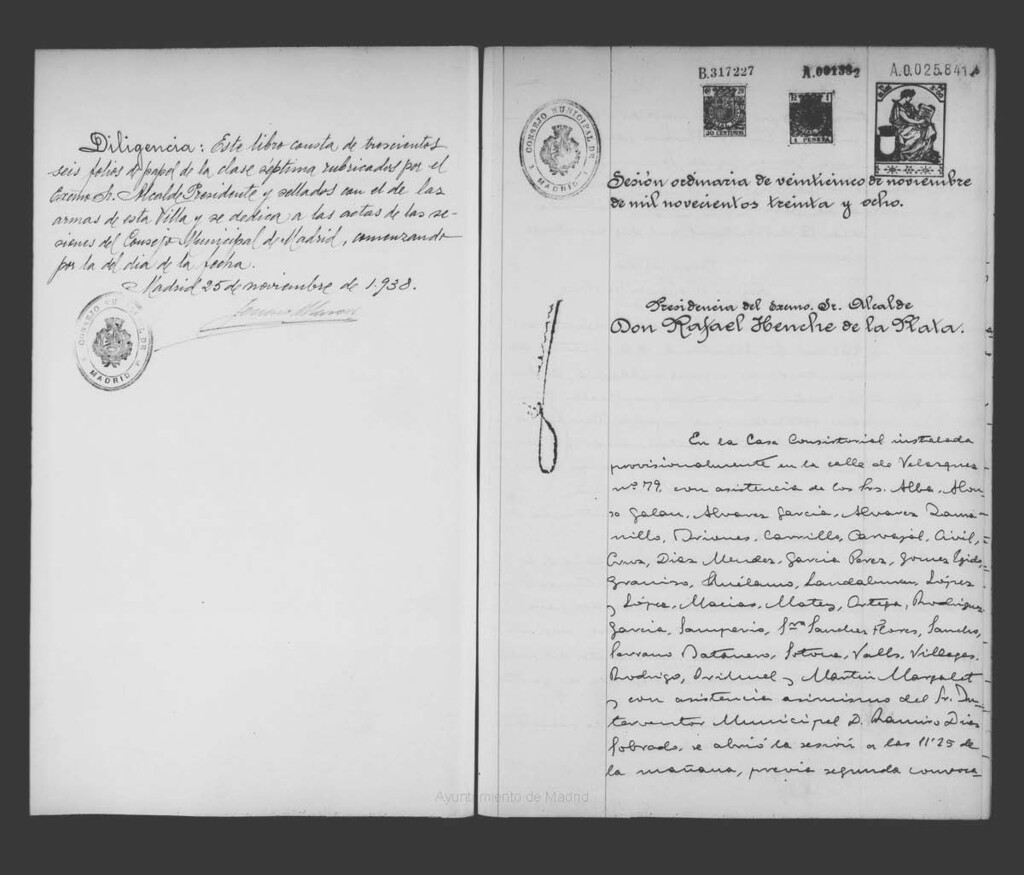 Diligencia: Este libro consta de trescientos
seis folios de papel de la clase séptima rubricados por el
Excmo. Sr. Alcalde Presidente y sellados con el de las
armas de esta Villa y se dedica a las actas de las se-
siones del Consejo Municipal de Madrid, comenzando
por la del dia de la fecha.
Madrid 25 de noviembre de 1.938.
CONSEJO MUNICIPAL DE
MADRID
B.317227
A.0.025.841
CONSEJO MUNICIPAL DE
MADRID
30 CENTIMOS
1 PESETA
Sesión ordinaria de veinticinco de noviembre
de mil novecientos treinta y ocho.
Presidencia del Excmo. Sr. Alcalde
Don Rafael Henche de la Plata.
En la Casa Consistorial instalada
provisionalmente en la calle de Velazquez
nº 79, con asistencia de los Srs. Alba, Alon-
so Galan, Alvarez Garcia, Alvarez
Briones, Carrillo, Carvajal, Civil,
Cruz, Diaz Mendez, Garcia Perez, Gomez Egido,
Granizo, Huélamo, Landaburu, López
y López, Macias, Matey, Ortega, Rodriguez
Garcia, Samperio, Sra Sanchez Flores, Sancho,
Serrano Batanero, Valls, Villegas,
Rodrigo, y Martin
y con asistencia asimismo del Sr. In-
terventor Municipal D. Ramiro Diaz
Sobrado, se abrió la sesión a las 11'25 de
la mañana, previa segunda convoca-
Ayuntamiento de Madrid